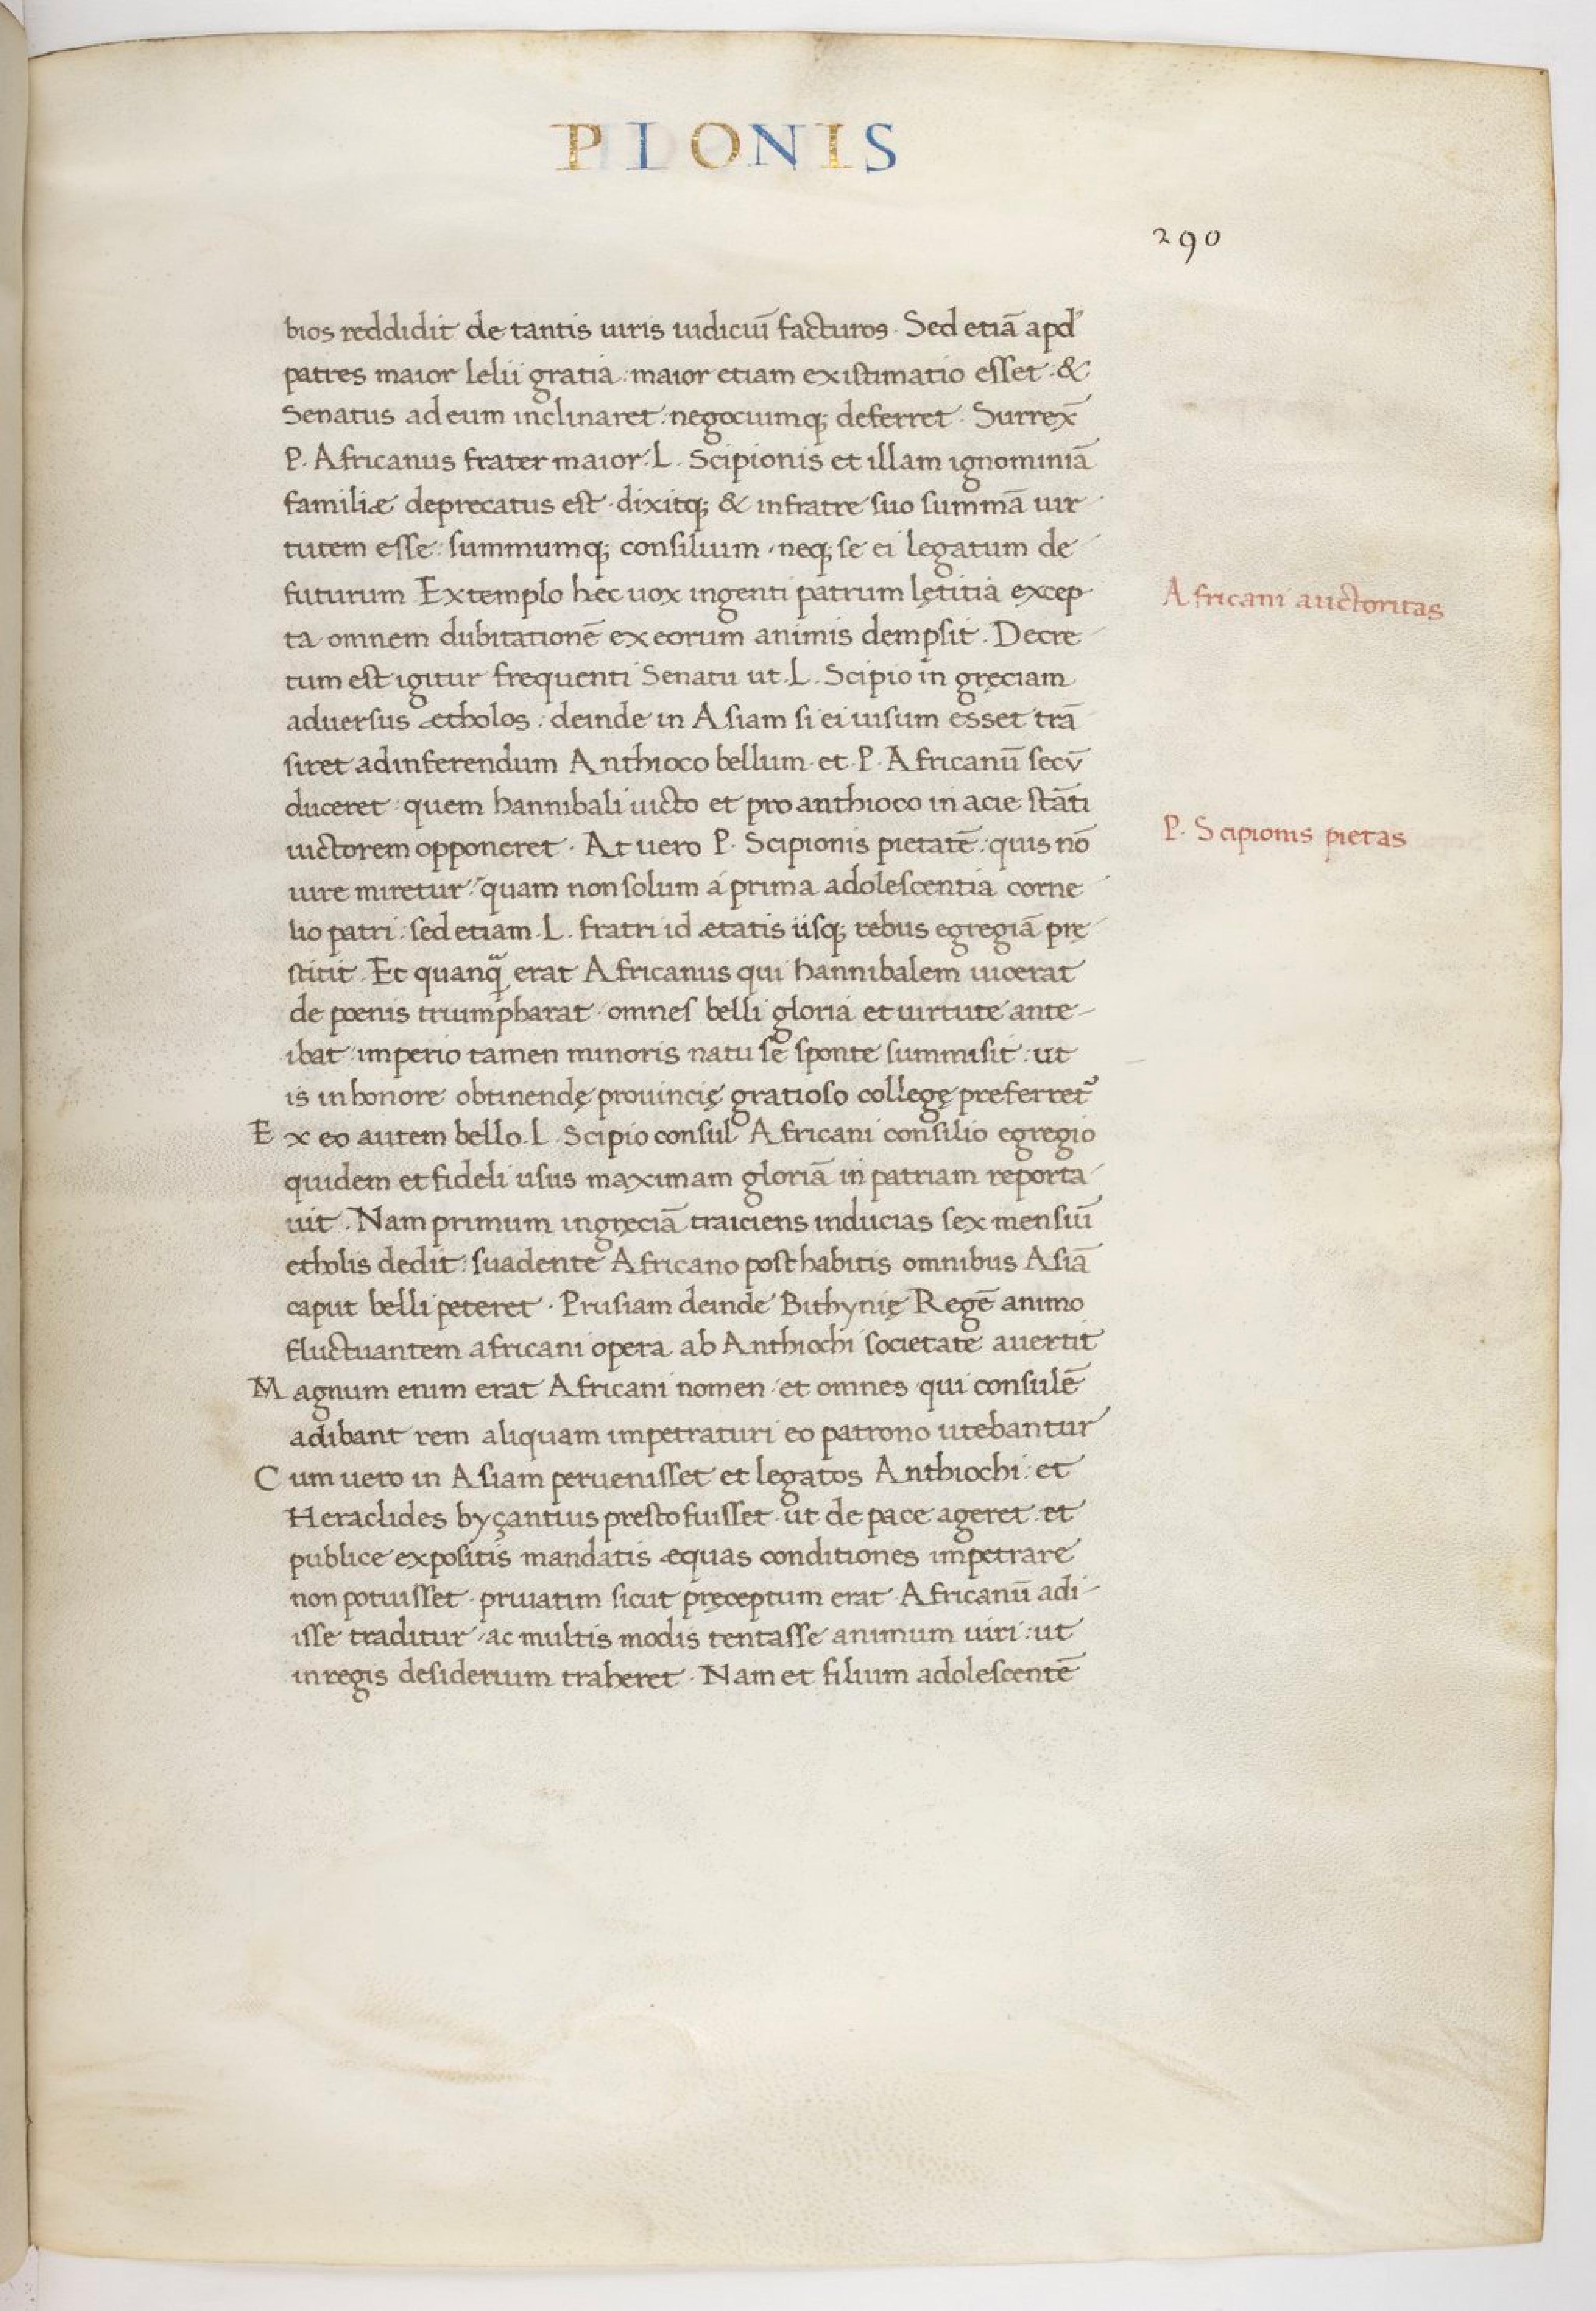 PIONIS
290
bios reddidit de tantis uiris iudiciū facturos · Sed etiā apd'
patres maior Lelii gratia : maior etiam existimatio esset · &
Senatus ad eum inclinaret : negociumq; deferret · Surrex̄
P. Africanus frater maior . L . Scipionis et illam ignominiā
familiæ deprecatus est · dixitq; & in fratre suo summā uir
tutem esse : summumq; consilium · neq; se ei legatum de
futurum Extemplo hec uox ingenti patrum lętitia excep
ta omnem dubitationē ex eorum animis dempsit . Decre
tum est igitur frequenti Senatu ut . L . Scipio in gręciam
aduersus ætholos : deinde in Asiam si ei uisum esset trā
siret ad inferendum Anthioco bellum · et . P . Africanū secū
duceret : quem hannibali uicto et pro anthioco in acie stāti
uictorem opponeret · At uero P. Scipionis pietatē : quis nō
iure miretur : quam non solum a prima adolescentia corne
lio patri : sed etiam . L . fratri id ætatis iisq; rebus egregiā prę
stitit . Et quanq̄ erat Africanus qui hannibalem uicerat
de pœnis triumpharat · omnes belli gloria et uirtute ante-
ibat · imperio tamen minoris natu se sponte summisit : ut
is in honore obtinendę prouincię gratioso collegę preferret᷑
Ex eo autem bello . L . Scipio consul Africani consilio egregio
quidem et fideli usus maximam gloriā in patriam reporta
uit . Nam primum in gręciā traiciens inducias sex mensiū
etholis dedit : suadente Africano posthabitis omnibus Asiā
caput belli peteret · Prusiam deinde Bithynię Regē animo
fluctuantem africani opera ab Anthiochi societate auertit
Magnum enim erat Africani nomen · et omnes qui consulē
adibant rem aliquam impetraturi eo patrono utebantur
Cum uero in Asiam peruenisset et legatos Anthiochi : et
Heraclides byçantius presto fuisset · ut de pace ageret · et
publice expositis mandatis æquas conditiones impetrare
non potuisset · priuatim sicut pręceptum erat Africanū adi-
isse traditur · ac multis modis tentasse animum uiri : ut
in regis desiderium traheret · Nam et filium adolescentē
Africani auctoritas
P. Scipionis pietas